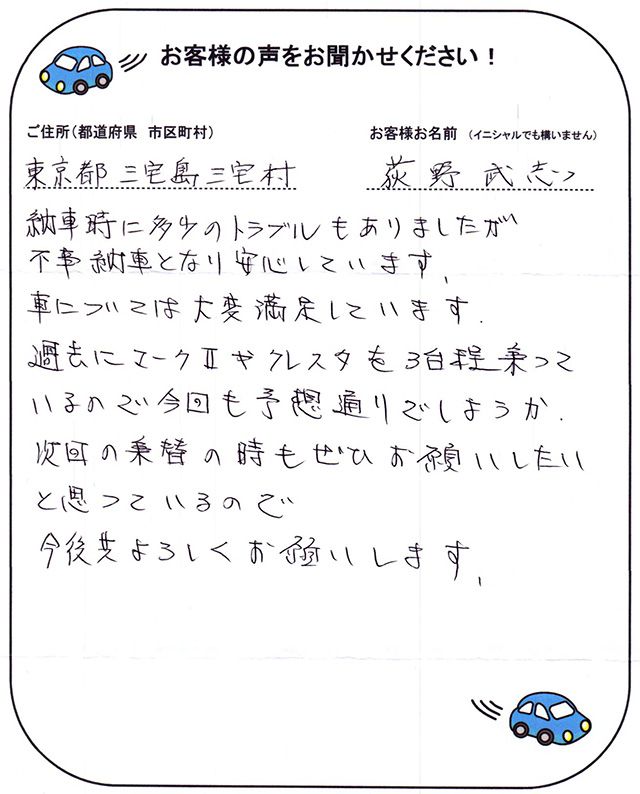 お客様の声をお聞かせください！
ご住所（都道府県 市区町村） お客様お名前 （イニシャルでも構いません）
東京都三宅島三宅村 荻野武志
納車時に多少のトラブルもありましたが
不事納車となり安心しています。
車については大変満足しています。
過去にマークⅡやクレスタを3台程乗って
いるので今回も予想通りでしようか.
次回の乗替の時もぜひお願いしたい
と思っているので
今後共よろしくお願いします。